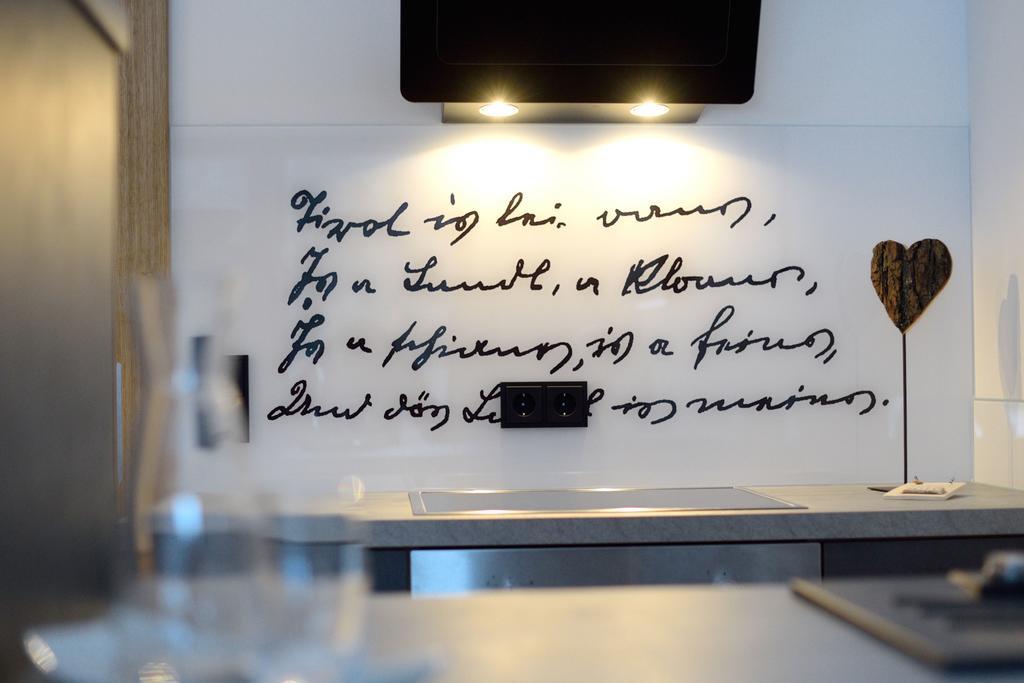 Tirol is lei oans,
Is a Landl, a kloans,
Is a schians, is a feins,
Und dös La l is meins.